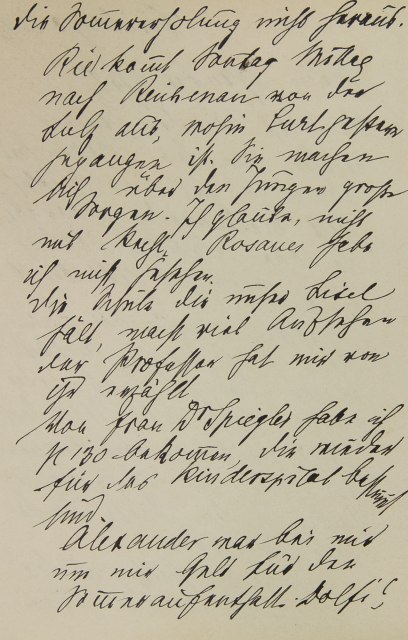 die Sommererholung nicht heraus.
Rie kommt Sontag Mittag
nach Reichenau von der
Sulz aus, wohin Curt gestern
gegangen ist. Sie machen
sich über den Jungen große
Sorgen. Ich glaube, nicht
mit Recht. Rosanes habe
ich nicht gesehen.
Die Schule die unsre Lisel
hält, macht viel Aufsehen
der Professor hat mir von
ihr erzählt
Von Frau Dr Spiegler habe ich
130 bekommen, die wieder
für das Kinderspital bestimmt
sind.
Alexander war bei mir
um mir Geld für den
Sommeraufenthalt Dolfi's